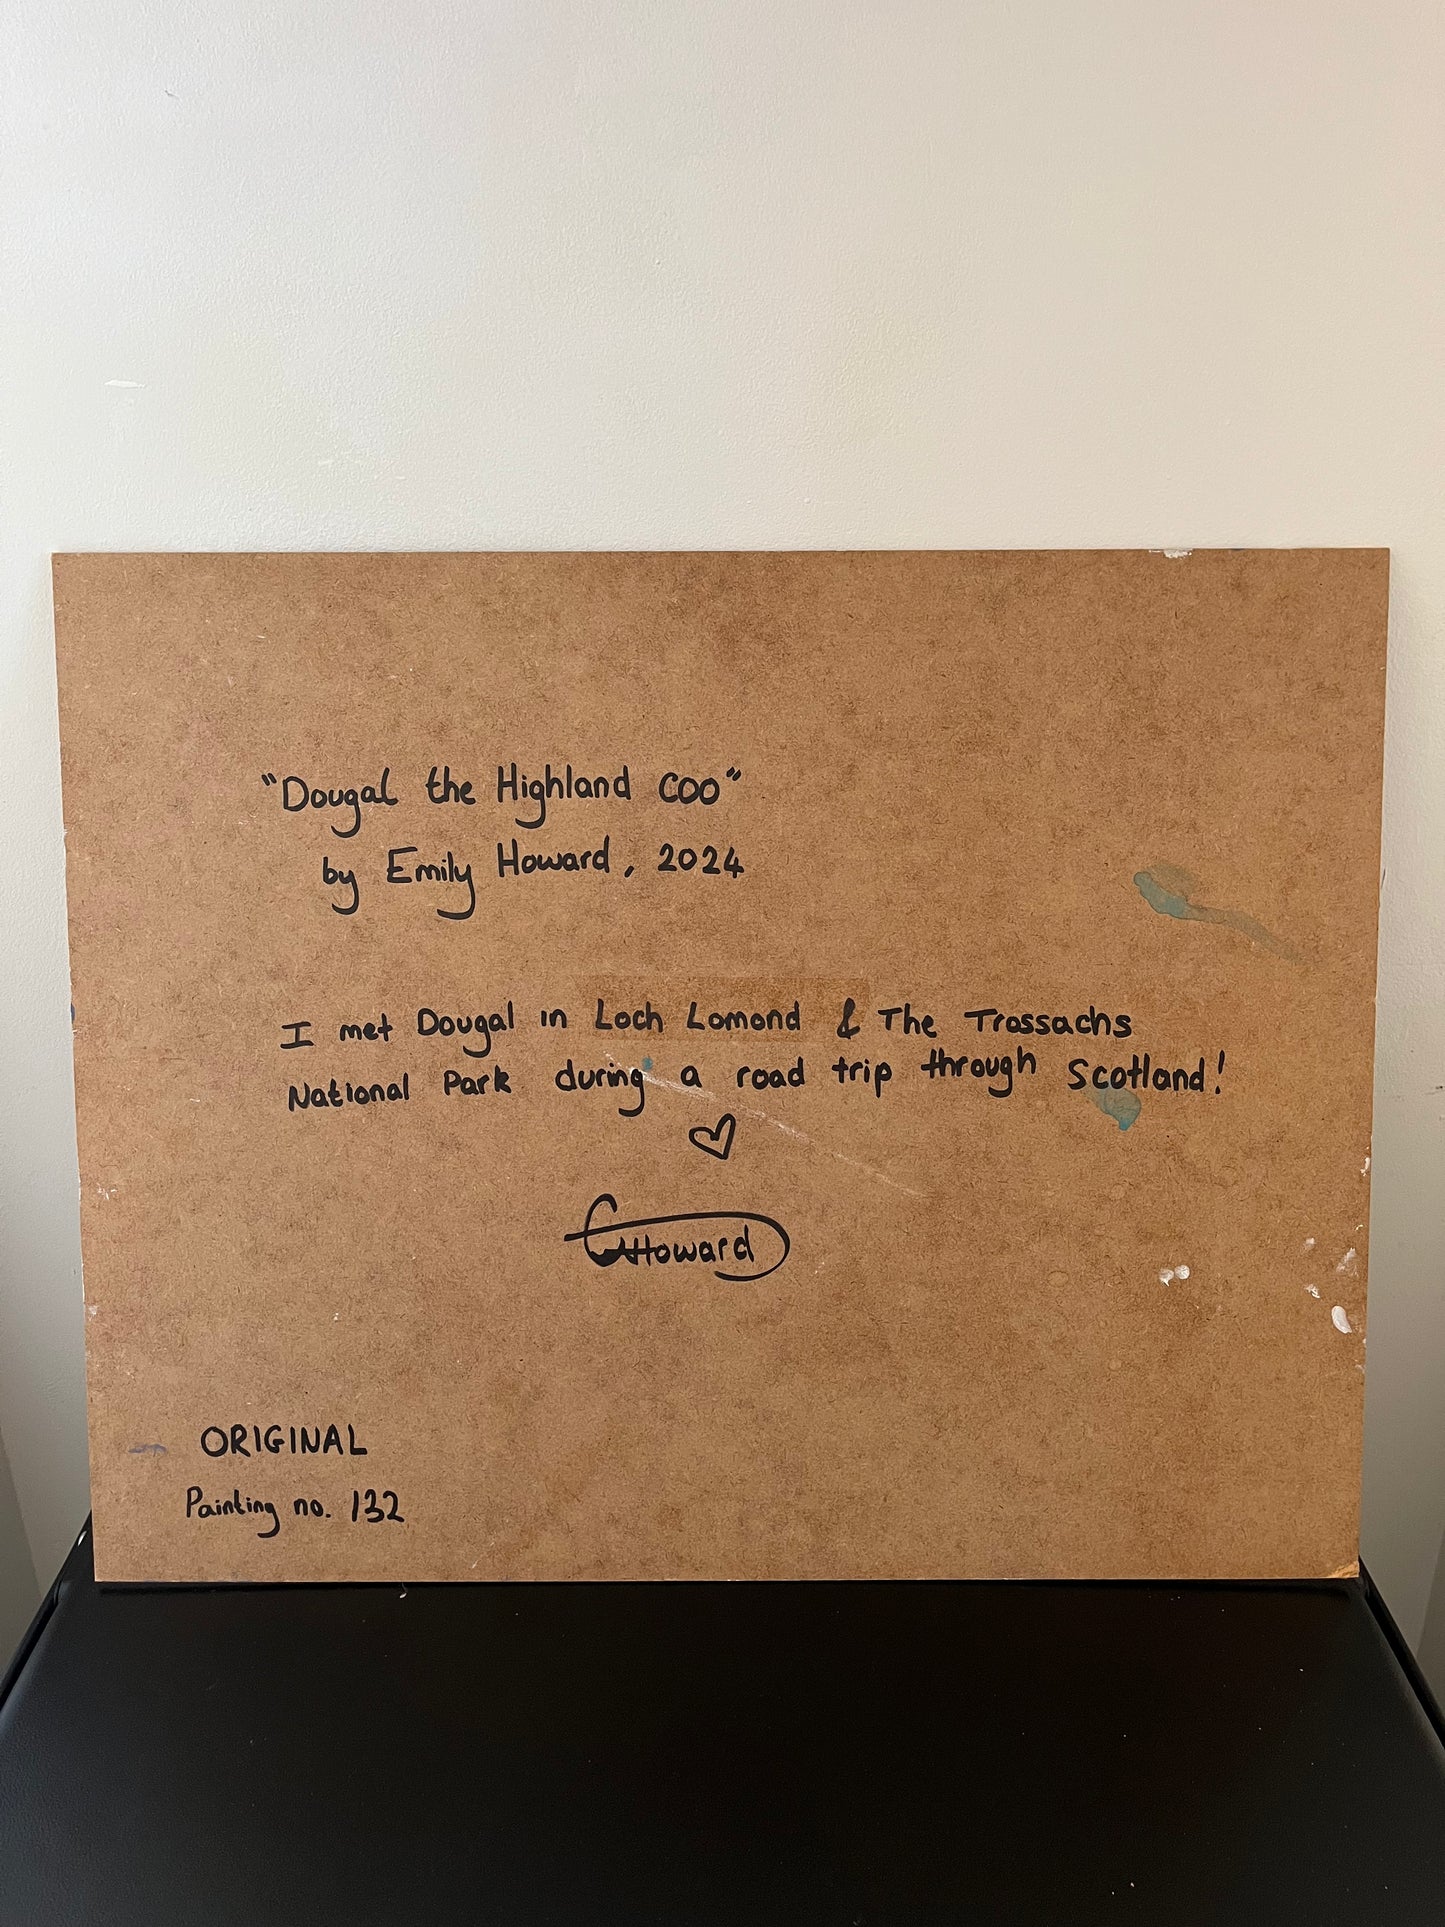 "Dougal the Highland Coo"
by Emily Howard, 2024
I met Dougal in Loch Lomond & The Trossachs
National Park during a road trip through Scotland!
EHoward
ORIGINAL
Painting no. 132